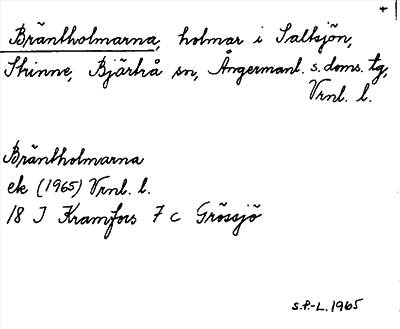 Bräntholmarna, holmar i Saltsjön,
Skinne, Bjärtrå sn, Ångermanl. s. doms. tg,
Vrnl. l.
Bräntholmarna
ek (1965) Vrnl. l.
18 J Kramfors 7 c Grössjö
S.P-L. 1965